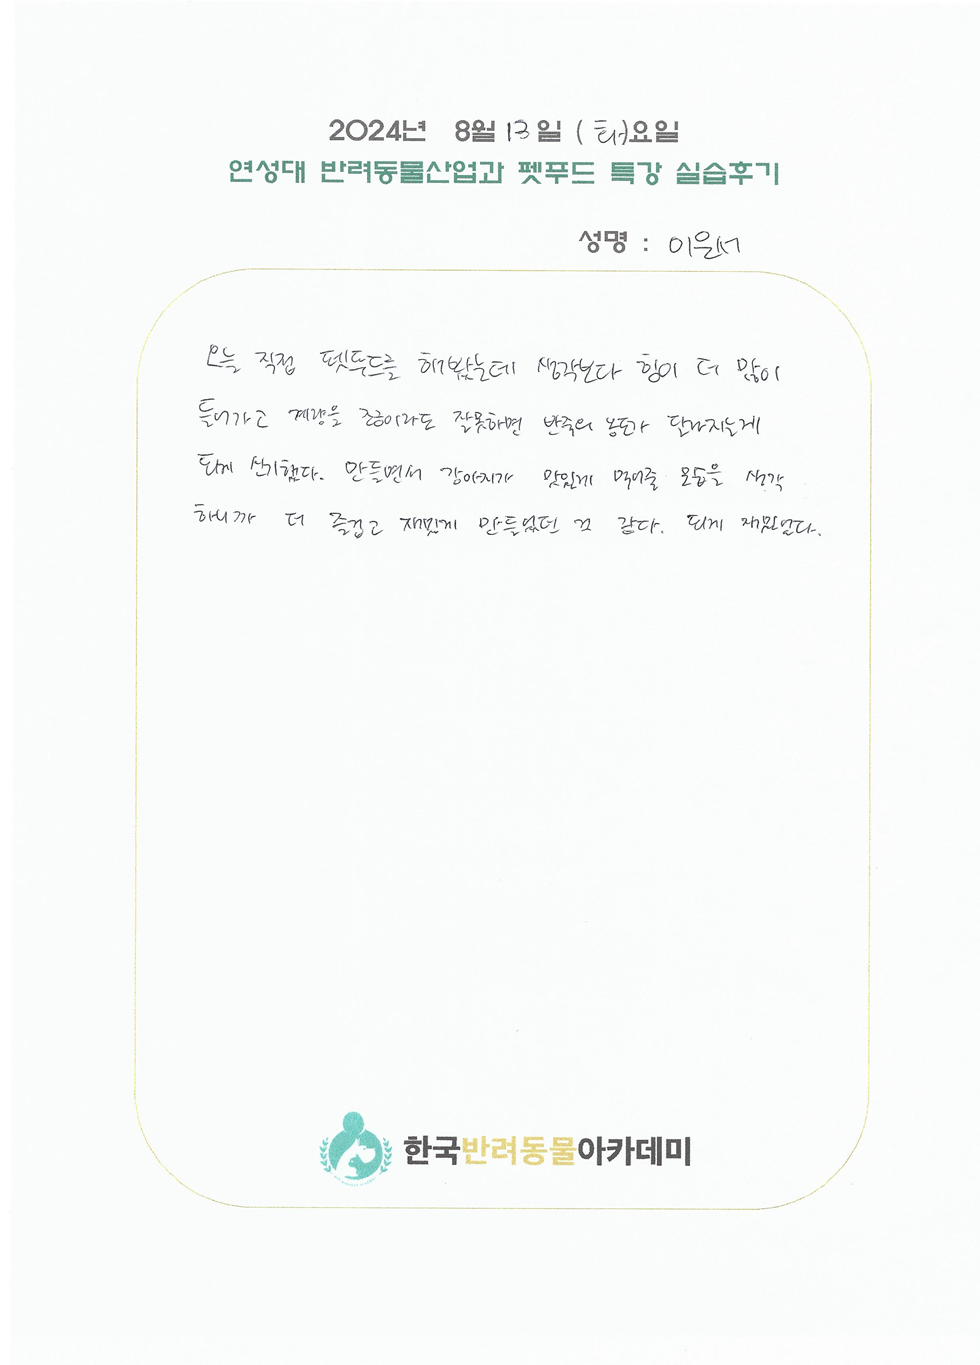 2024년 8월 13일 (화)요일
연성대 반려동물산업과 펫푸드 특강 실습후기
성명 : 이은서
오늘 직접 펫푸드를 해봤는데 생각보다 힘이 더 많이
들어가고 계량을 조금이라도 잘못하면 반죽의 농도가 달라지는게
되게 신기했다. 만들면서 강아지가 맛있게 먹어줄 모습을 생각
하니까 더 즐겁고 재밌게 만들었던 것 같다. 되게 재밌었다.
한국반려동물아카데미